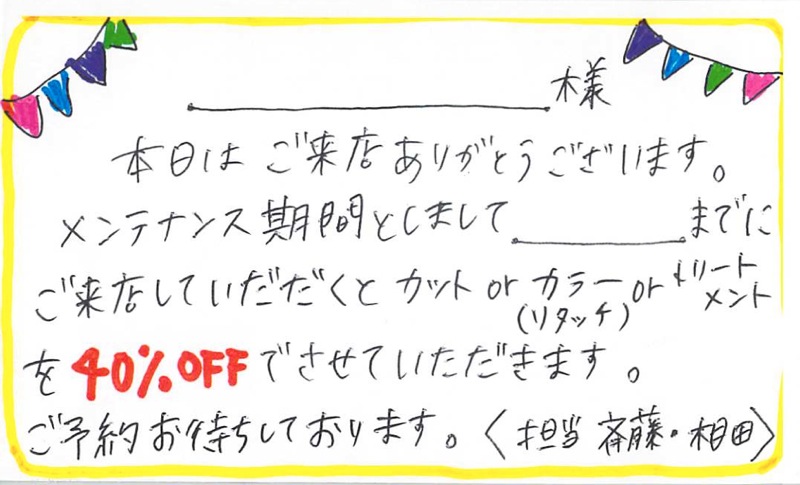 様
本日は ご来店ありがとうございます。
メンテナンス期間としまして までに
ご来店していだだくと カット or カラー(リタッチ) or トリートメント
を 40%OFF でさせていただきます。
ご予約お待ちしております。〈担当 斉藤・相田〉